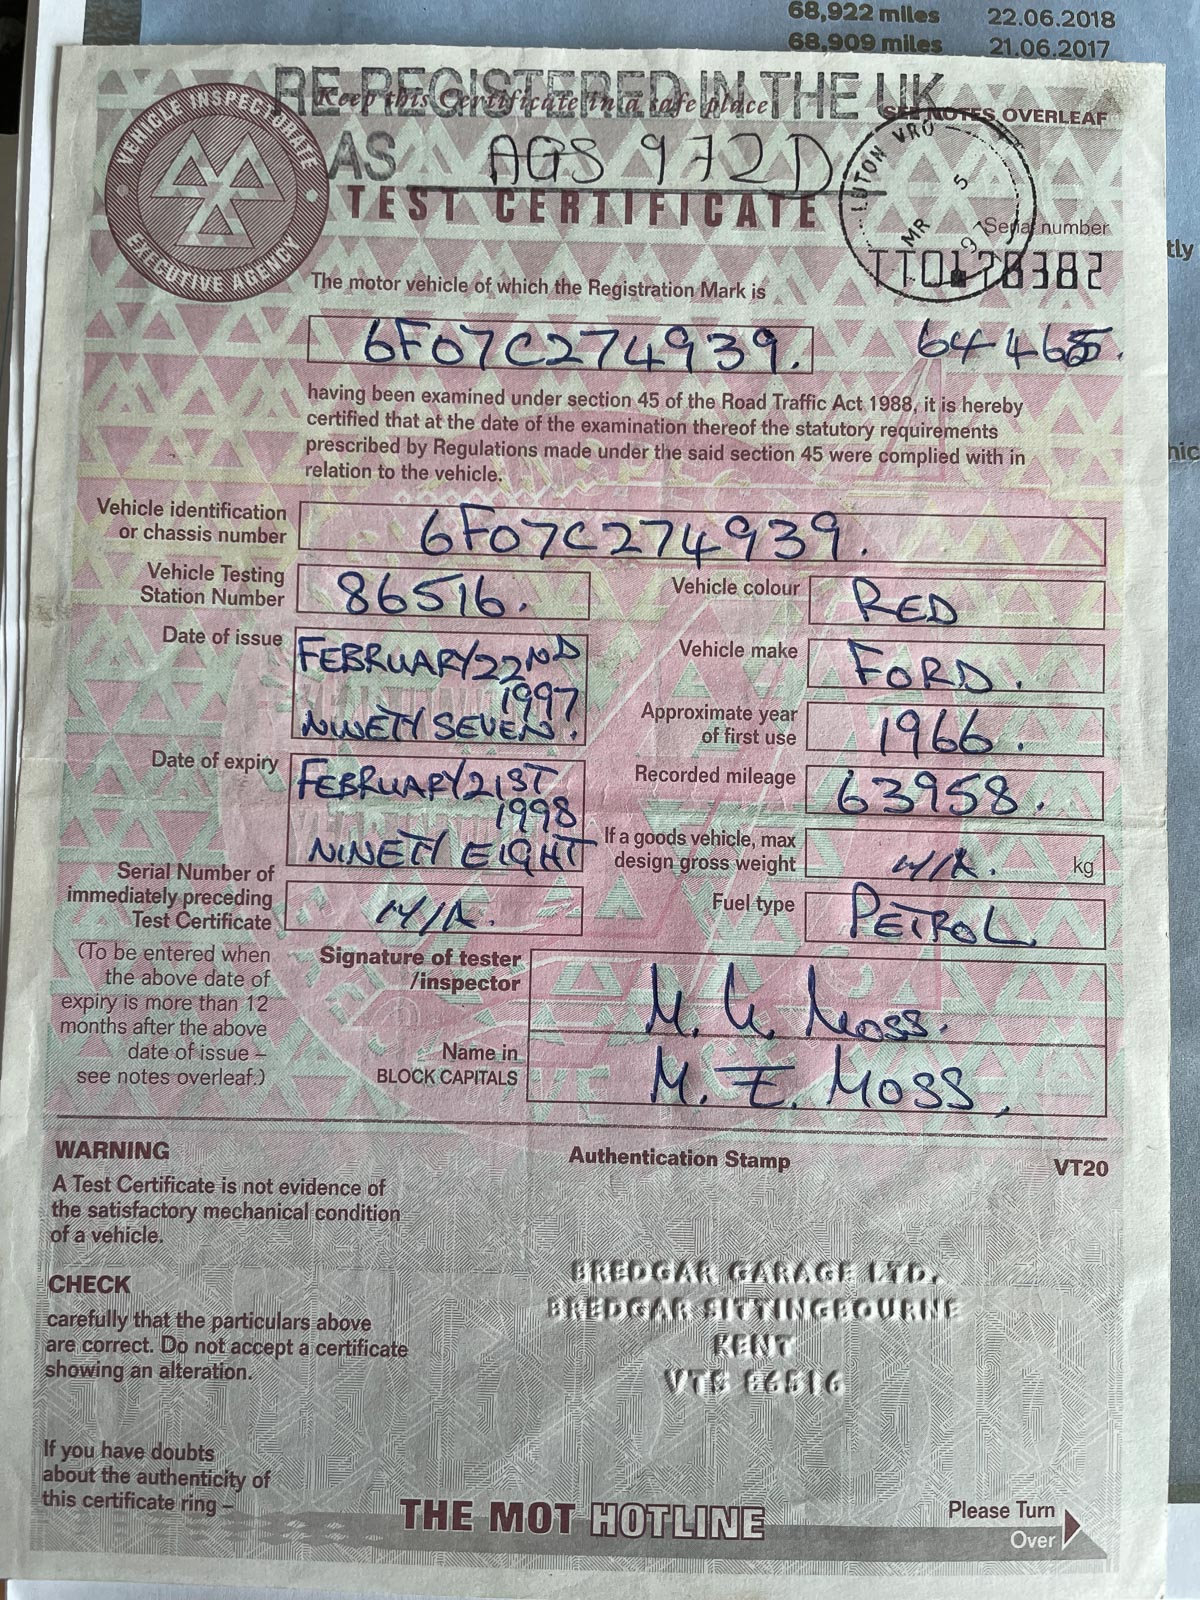 68,922 miles 22.06.2018
68,909 miles 21.06.2017
RE-REGISTERED IN THE UK
Keep this Certificate in a safe place
SEE NOTES OVERLEAF
AS AGS 972D
VEHICLE INSPECTORATE
EXECUTIVE AGENCY
LUTON VRO
5
MR
97
TEST CERTIFICATE
Serial number
The motor vehicle of which the Registration Mark is
6F07C274939.
having been examined under section 45 of the Road Traffic Act 1988, it is hereby
certified that at the date of the examination thereof the statutory requirements
prescribed by Regulations made under the said section 45 were complied with in
relation to the vehicle.
Vehicle identification
or chassis number
6F07C274939.
Vehicle Testing
Station Number
86516.
Vehicle colour
RED
Date of issue
FEBRUARY 22ND
1997
NINETY SEVEN.
Vehicle make
FORD.
Approximate year
of first use
1966.
Date of expiry
FEBRUARY 21ST
1998
NINETY EIGHT
Recorded mileage
63958.
If a goods vehicle, max
design gross weight
N/A. kg
Serial Number of
immediately preceding
Test Certificate
N/A.
Fuel type
PETROL
(To be entered when
the above date of
expiry is more than 12
months after the above
date of issue –
see notes overleaf.)
Signature of tester
/inspector
Moss.
Name in
BLOCK CAPITALS
M. E. MOSS.
WARNING
A Test Certificate is not evidence of
the satisfactory mechanical condition
of a vehicle.
Authentication Stamp
VT20
CHECK
carefully that the particulars above
are correct. Do not accept a certificate
showing an alteration.
BREDGAR GARAGE LTD.
BREDGAR SITTINGBOURNE
KENT
VTS 86516
If you have doubts
about the authenticity of
this certificate ring –
THE MOT HOTLINE
Please Turn
Over